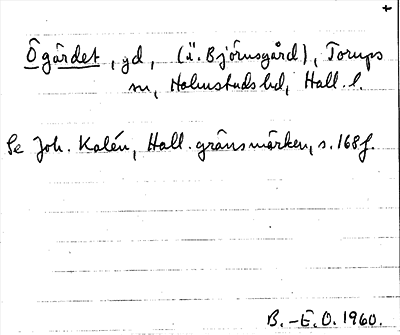 +
Ögärdet, gd, (ä. Björnsgård), Torups
sn, Halmstads hd, Hall. l.
Se Joh. Kalén, Hall. gränsmärken, s. 168 f.
B.-E.O. 1960.